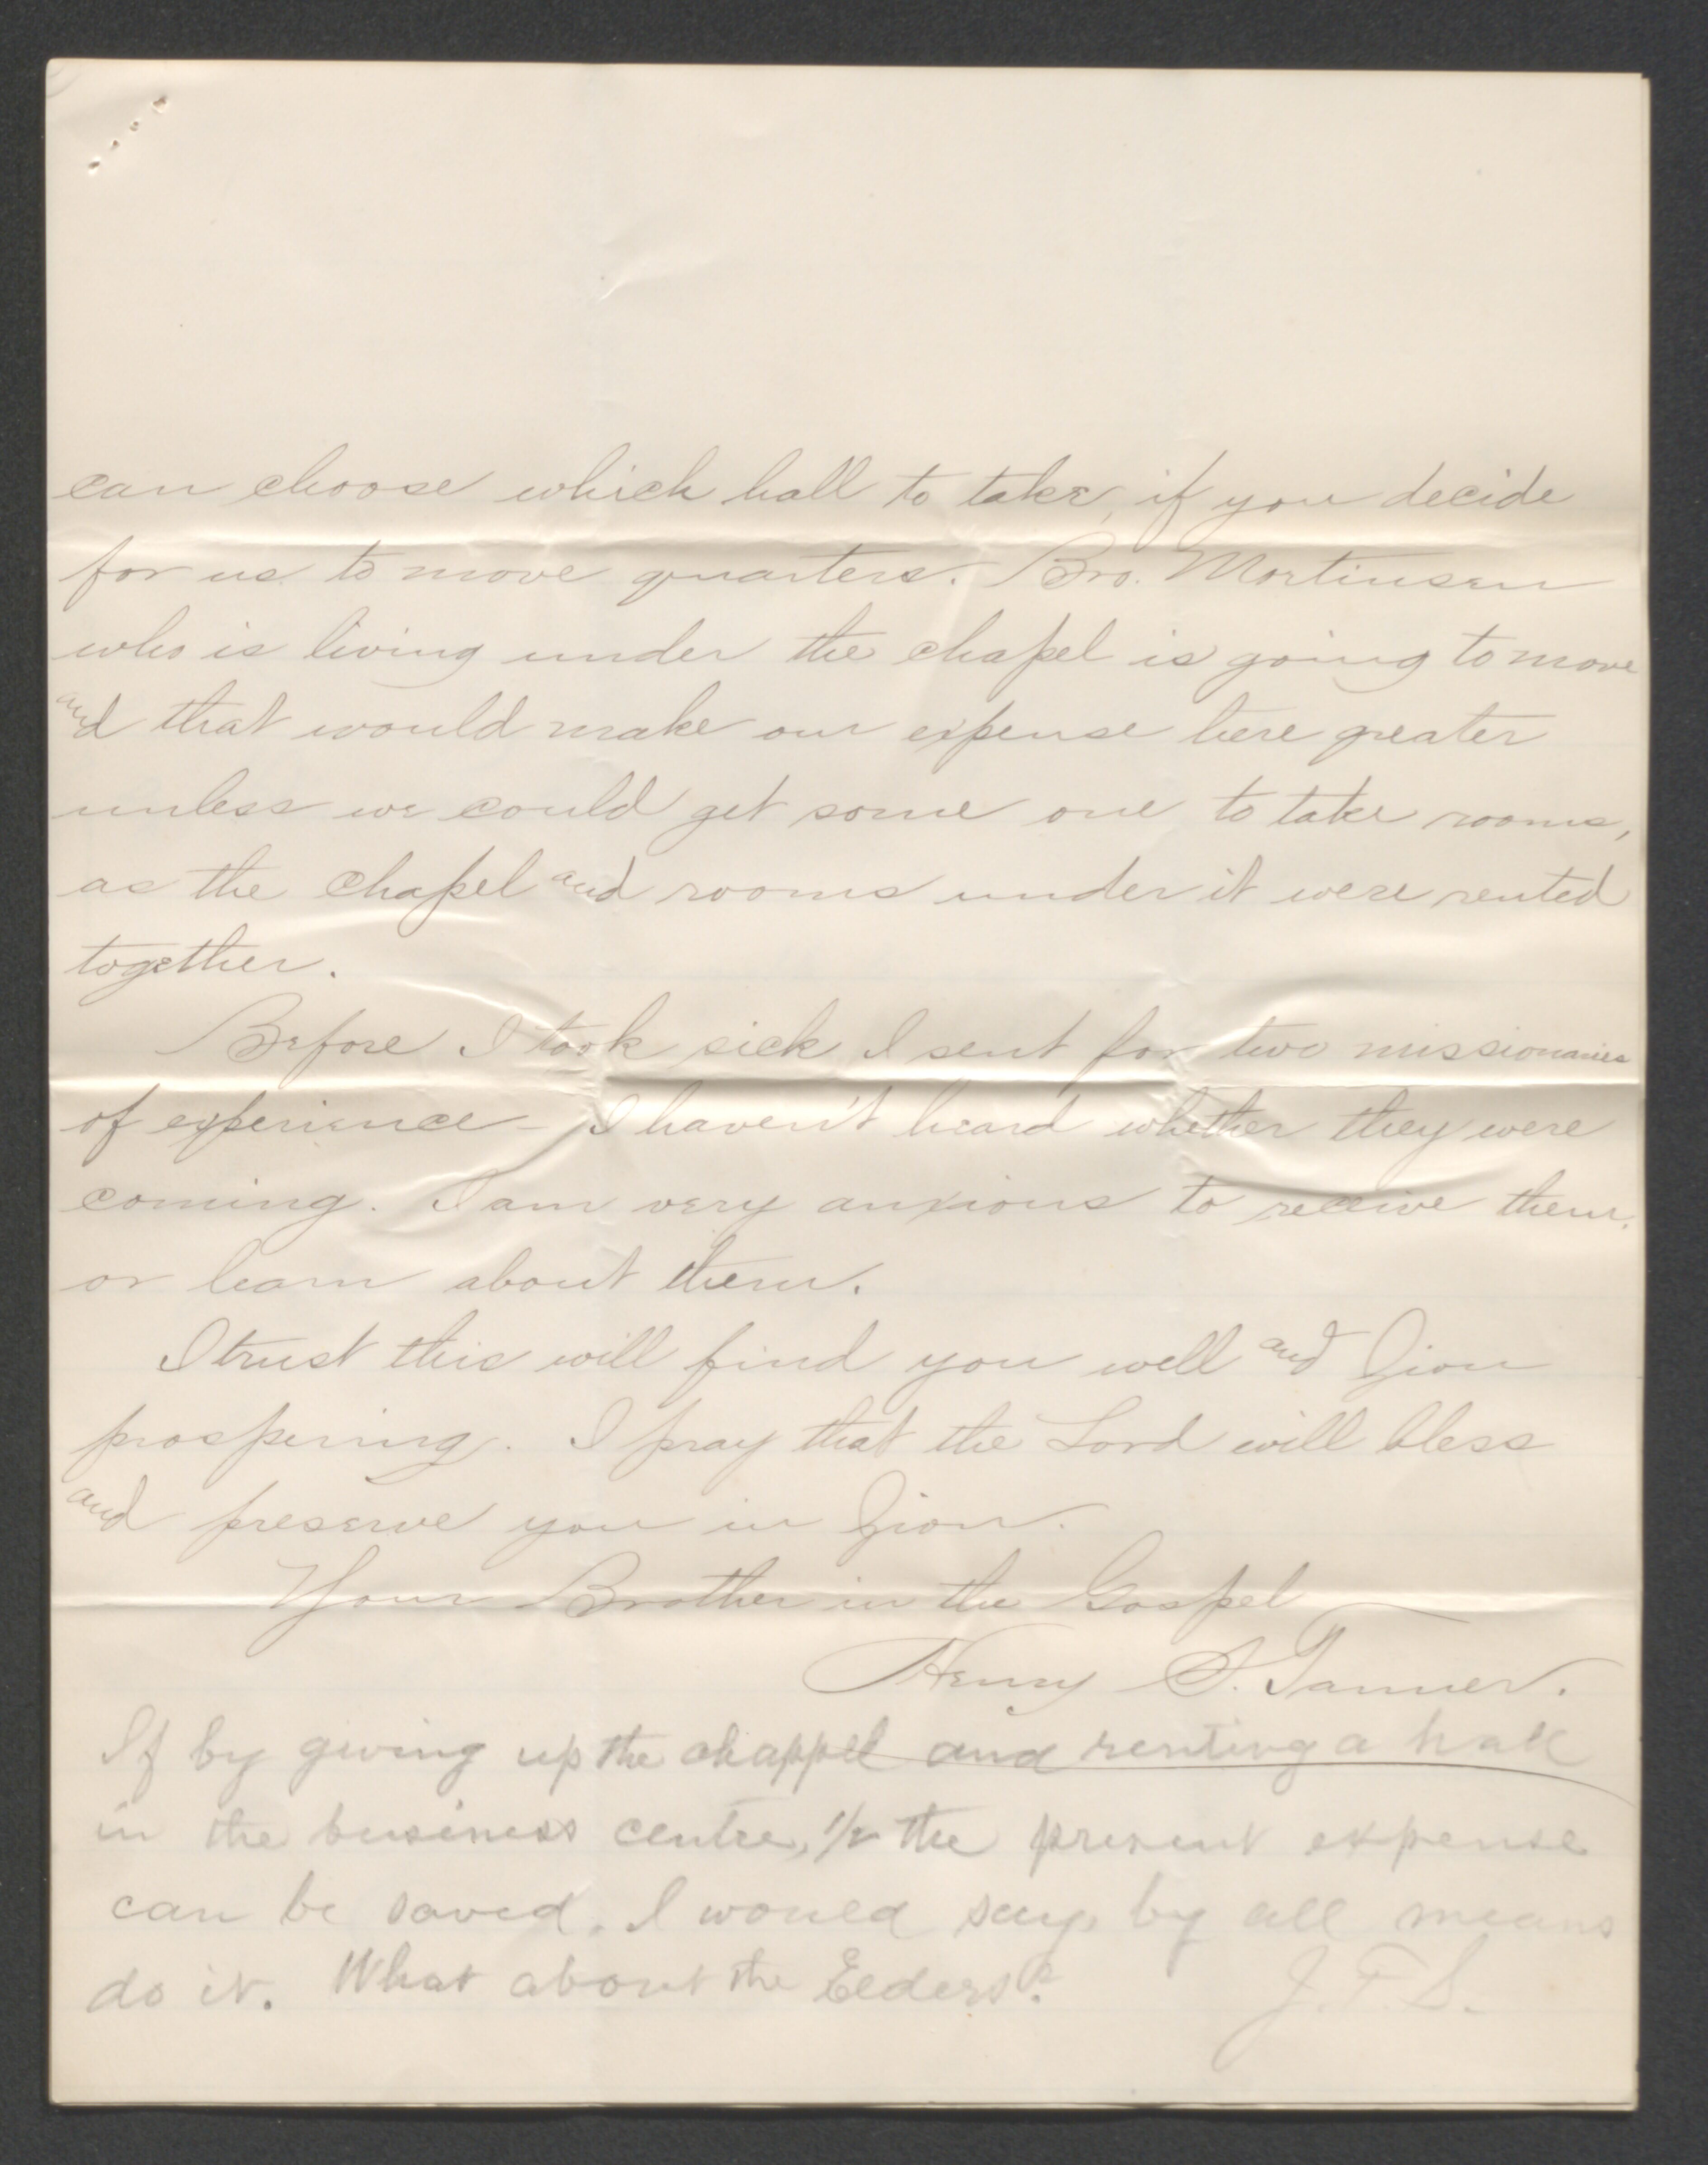 can choose which hall to take, if you decide
for us to move quarters. Bro. Mortinsen
who is living under the chapel is going to move
and that would make our expense here greater
unless we could get some one to take rooms,
as the chapel and rooms under it were rented
together.
Before I took sick I sent for two missionaries
of experience - I haven't heard whether they were
coming. I am very anxious to receive them,
or learn about them.
I trust this will find you well and Zion
prospering. I pray that the Lord will bless
and preserve you in Zion.
Your Brother in the Gospel
Henry S. Tanner.
If by giving up the chappel and renting a hall
in the business centre, 1/2 the present expense
can be saved, I would say, by all means
do it. What about the Elders?
J.F.S.